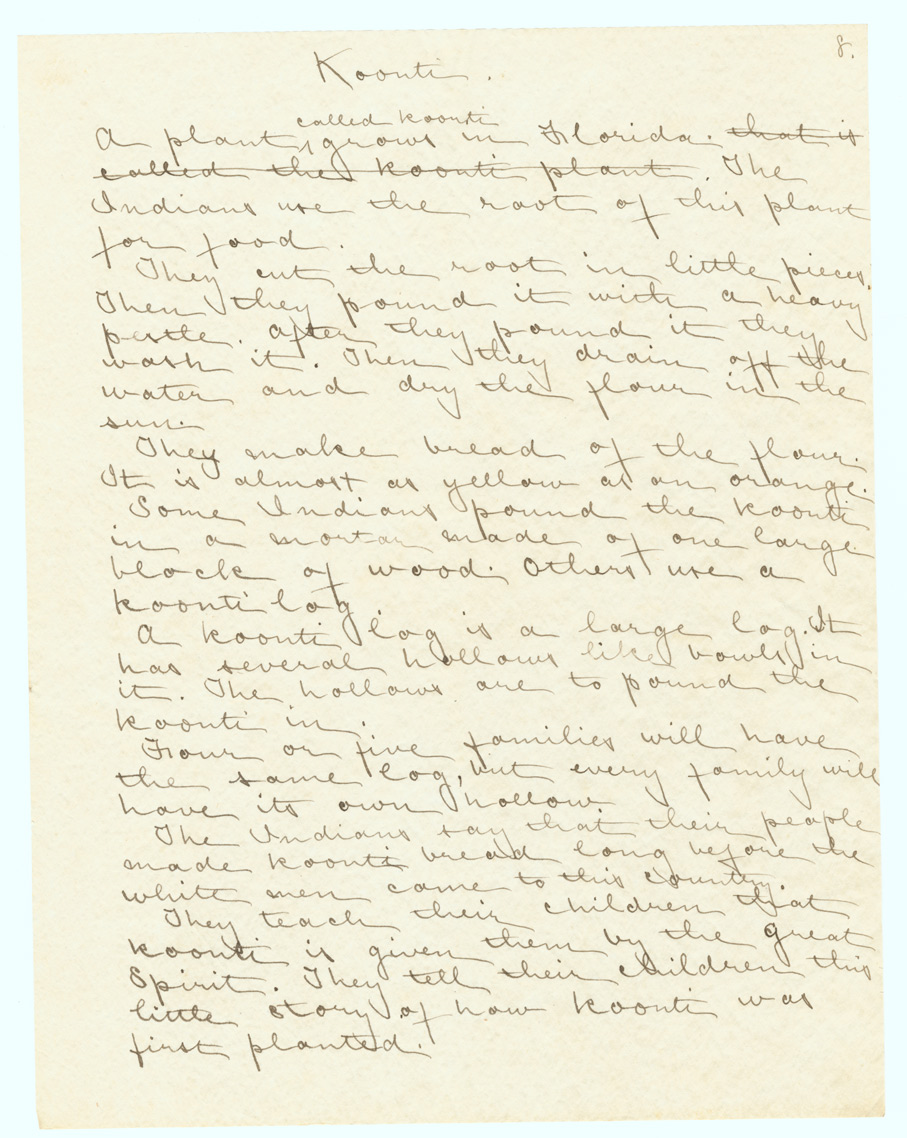 8.
Koonti.
called koonti
A plant, grows in Florida. that is
called the koonti plant. The
Indians use the root of this plant
for food.
They cut the root in little pieces.
Then they pound it with a heavy
pestle. After they pound it they
wash it. Then they drain off the
water and dry the flour in the
sun.
They make bread of the flour.
It is almost as yellow as an orange.
Some Indians pound the koonti
in a mortar made of one large
block of wood. Others use a
koonti log.
A koonti log is a large log. It
has several hollows like bowls in
it. The hollows are to pound the
koonti in.
Four or five families will have
the same log, but every family will
have its own hollow.
The Indians say that their people
made koonti bread long before the
white men came to this country.
They teach their children that
koonti is given them by the great
Spirit. They tell their children this
little story of how koonti was
first planted.